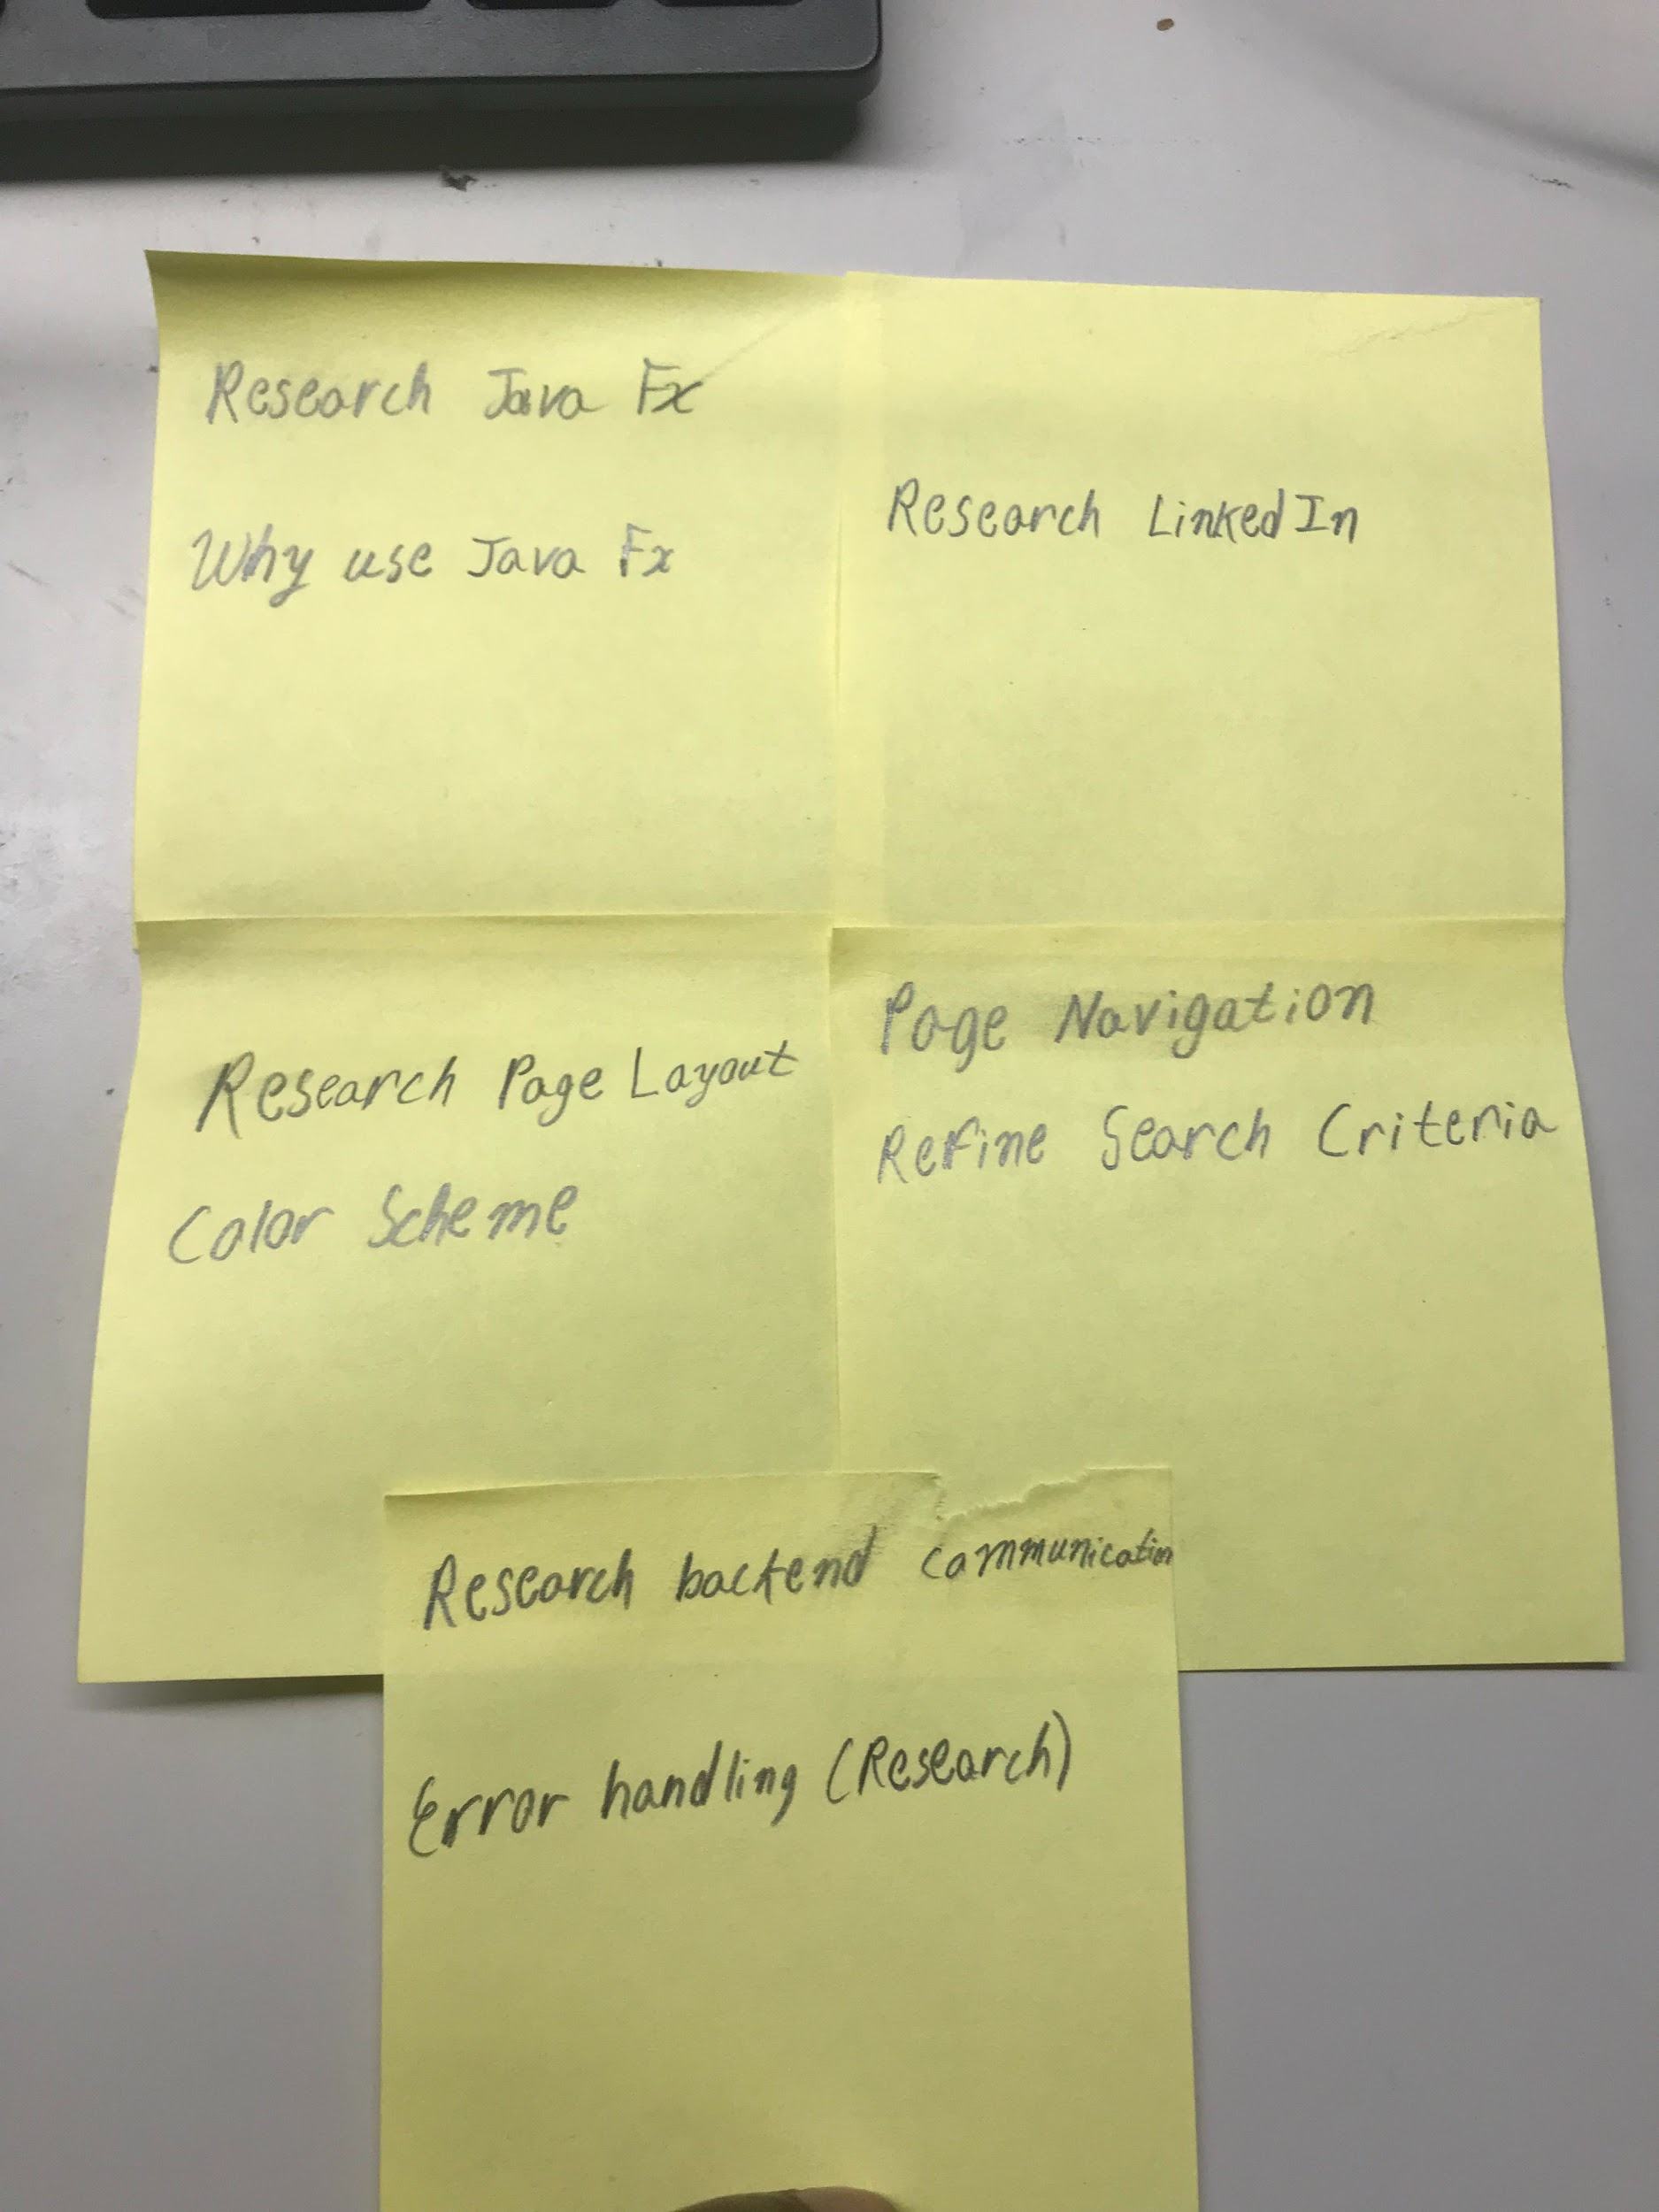 Research Java Fx
Why use Java Fx
Research LinkedIn
Research Page Layout
Color Scheme
Page Navigation
Refine Search Criteria
Research backend communication
Error handling (Research)